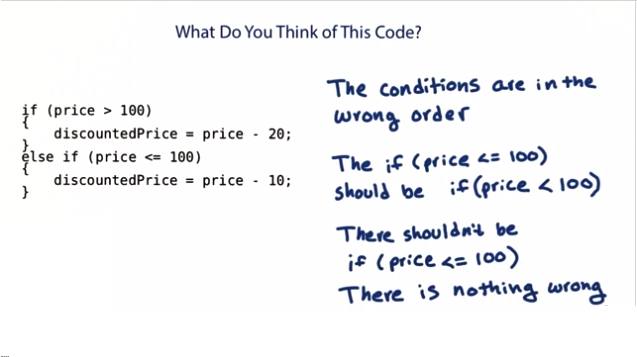 What Do You Think of This Code?
if (price > 100)
{
discountedPrice = price - 20;
}
else if (price <= 100)
{
discountedPrice = price - 10;
}
The conditions are in the
wrong order
The if (price <= 100)
should be if (price < 100)
There shouldn't be
if (price <= 100)
There is nothing wrong